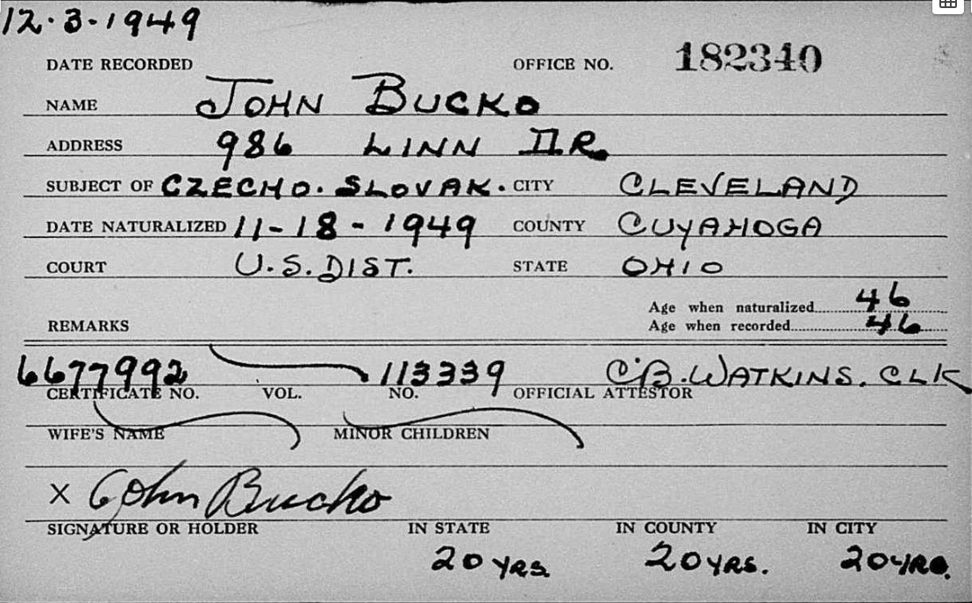 12-3-1949
DATE RECORDED OFFICE NO. 182340
NAME JOHN BUCKO
ADDRESS 986 LINN DR.
SUBJECT OF CZECHO. SLOVAK. CITY CLEVELAND
DATE NATURALIZED 11-18-1949 COUNTY CUYAHOGA
COURT U.S. DIST. STATE OHIO
Age when naturalized 46
REMARKS Age when recorded 46
6677992 113339 C.B. WATKINS. CLK
CERTIFICATE NO. VOL. NO. OFFICIAL ATTESTOR
WIFE'S NAME MINOR CHILDREN
X John Bucko
SIGNATURE OR HOLDER IN STATE IN COUNTY IN CITY
20 YRS. 20 YRS. 20 YRS.